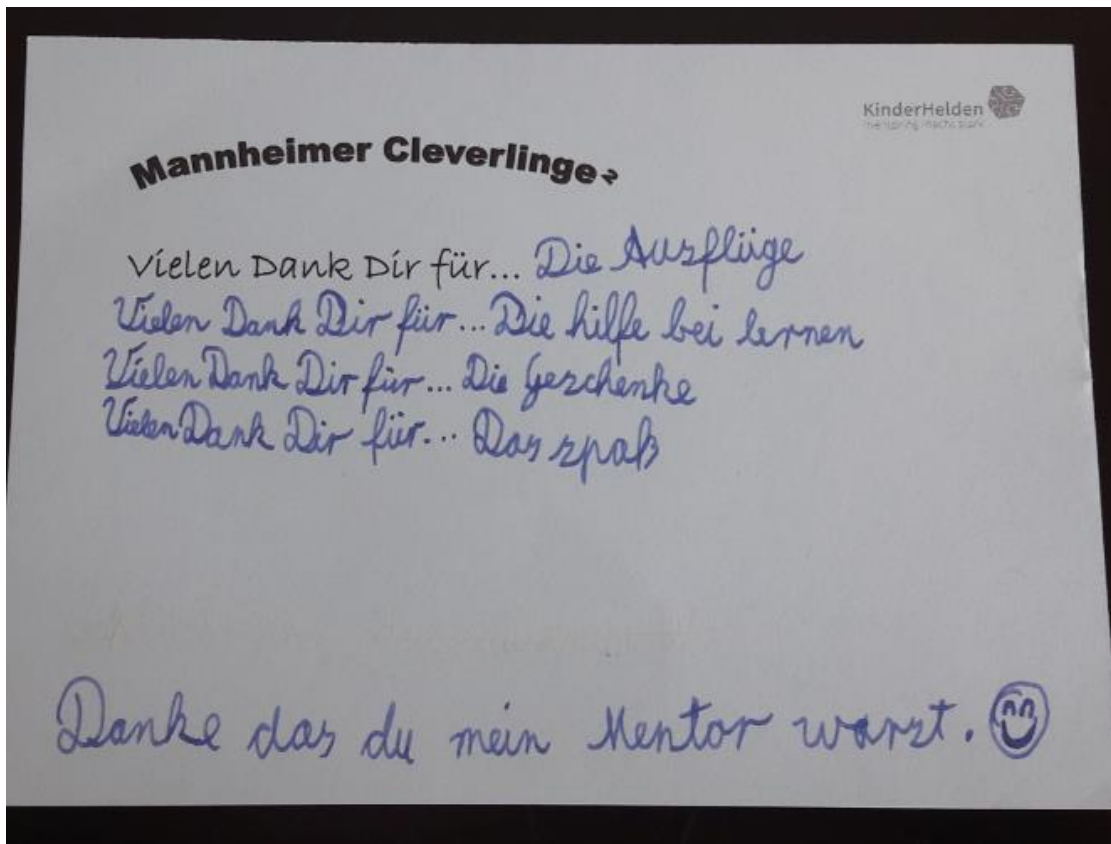 KinderHelden
mentoring macht stark
Mannheimer Cleverlinge²
Vielen Dank Dir für... Die Ausflüge
Vielen Dank Dir für... Die hilfe bei lernen
Vielen Dank Dir für... Die Geschenke
Vielen Dank Dir für... Das spaß
Danke das du mein Mentor warst.